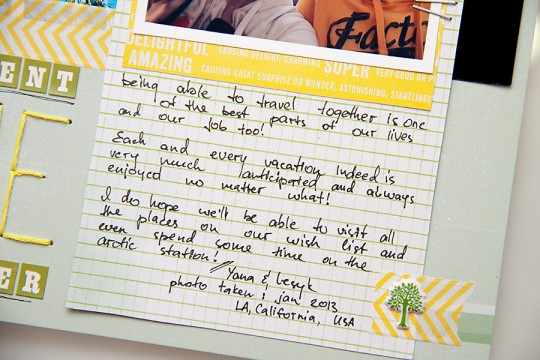 Facto
DELIGHTFUL CAUSING CHARMING SUPER VERY GOOD OR P
AMAZING CAUSING GREAT SURPRISE OR WONDER, ASTONISHING; STARTLING
ENT
E
ER
being able to travel together is one
of the best parts of our lives
and our job too!
Each and every vacation indeed is
very much anticipated and always
enjoyed no matter what!
I do hope we'll be able to visit all
the places on our wish list and
even spend some time on the
arctic station!
Yana & Lesyk
photo taken: jan 2013
LA, California, USA